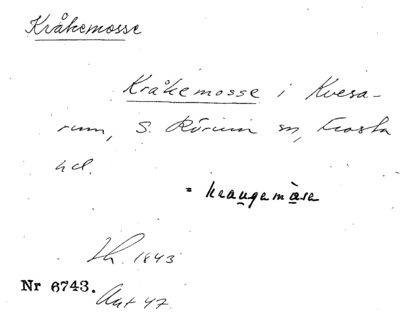 Kråkemosse
Kråkemosse i Kvesa-
rum, S. Rörum sn, Frosta
hd.
= kraugemåsa
1843
Nr 6743.
Ant 47.